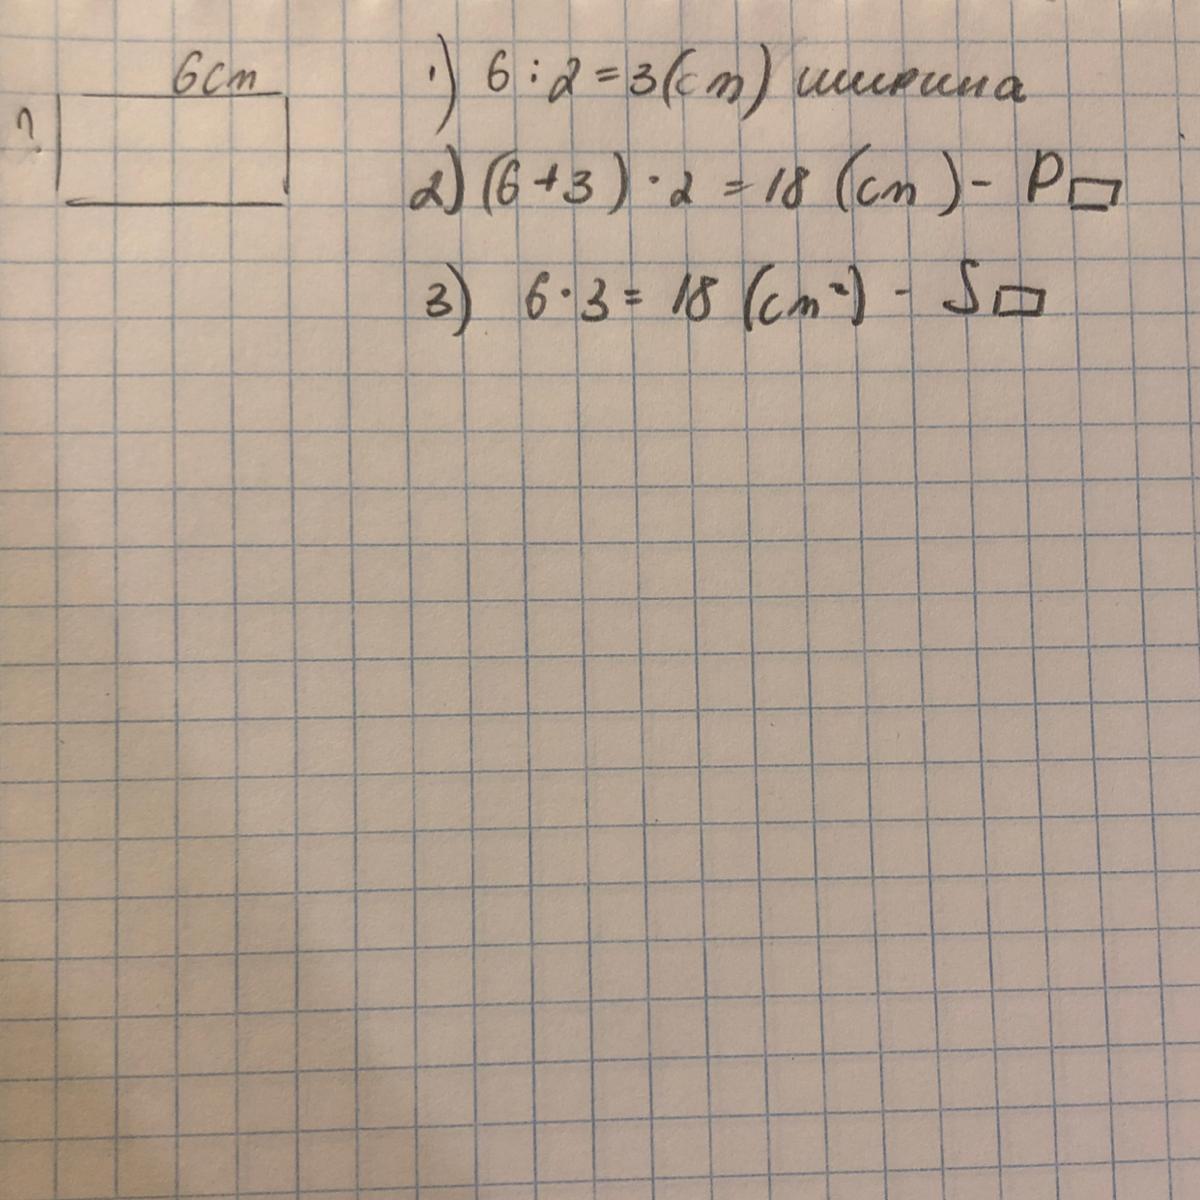 6cm
?
1) 6 : 2 = 3 (cm) ширина
2) (6 + 3) · 2 = 18 (cm) - P▭
3) 6 · 3 = 18 (cm²) - S▭